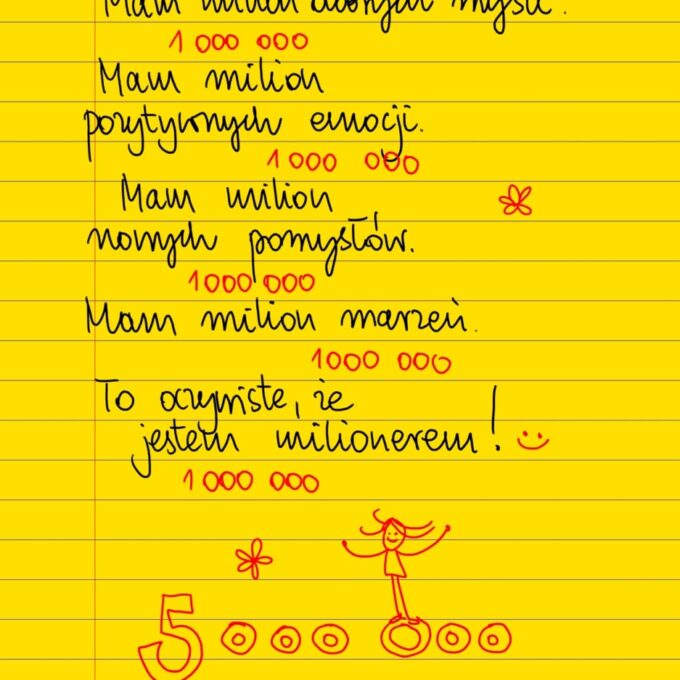 Mam milion dobrych myśli.
1 000 000
Mam milion
pozytywnych emocji.
1 000 000
Mam milion
nowych pomysłów.
1000 000
Mam milion marzeń.
1000 000
To oczywiste, że
jestem milionerem!
1 000 000
5 000 000